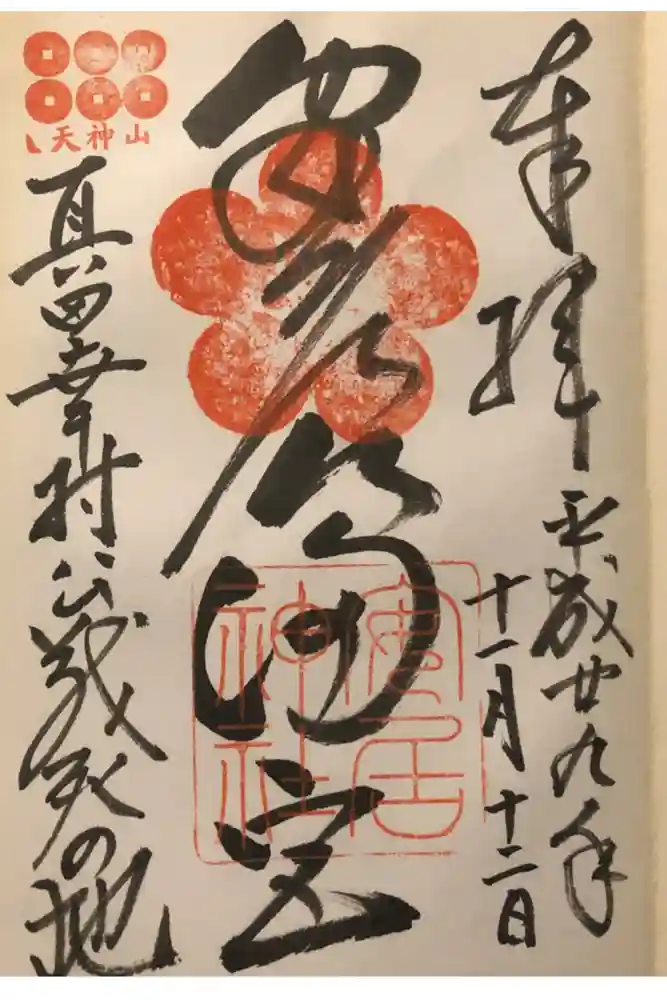 奉拝
平成廿九年
十一月十二日
安居天満宮
安居
神社
天神山
真田幸村公戦死の地